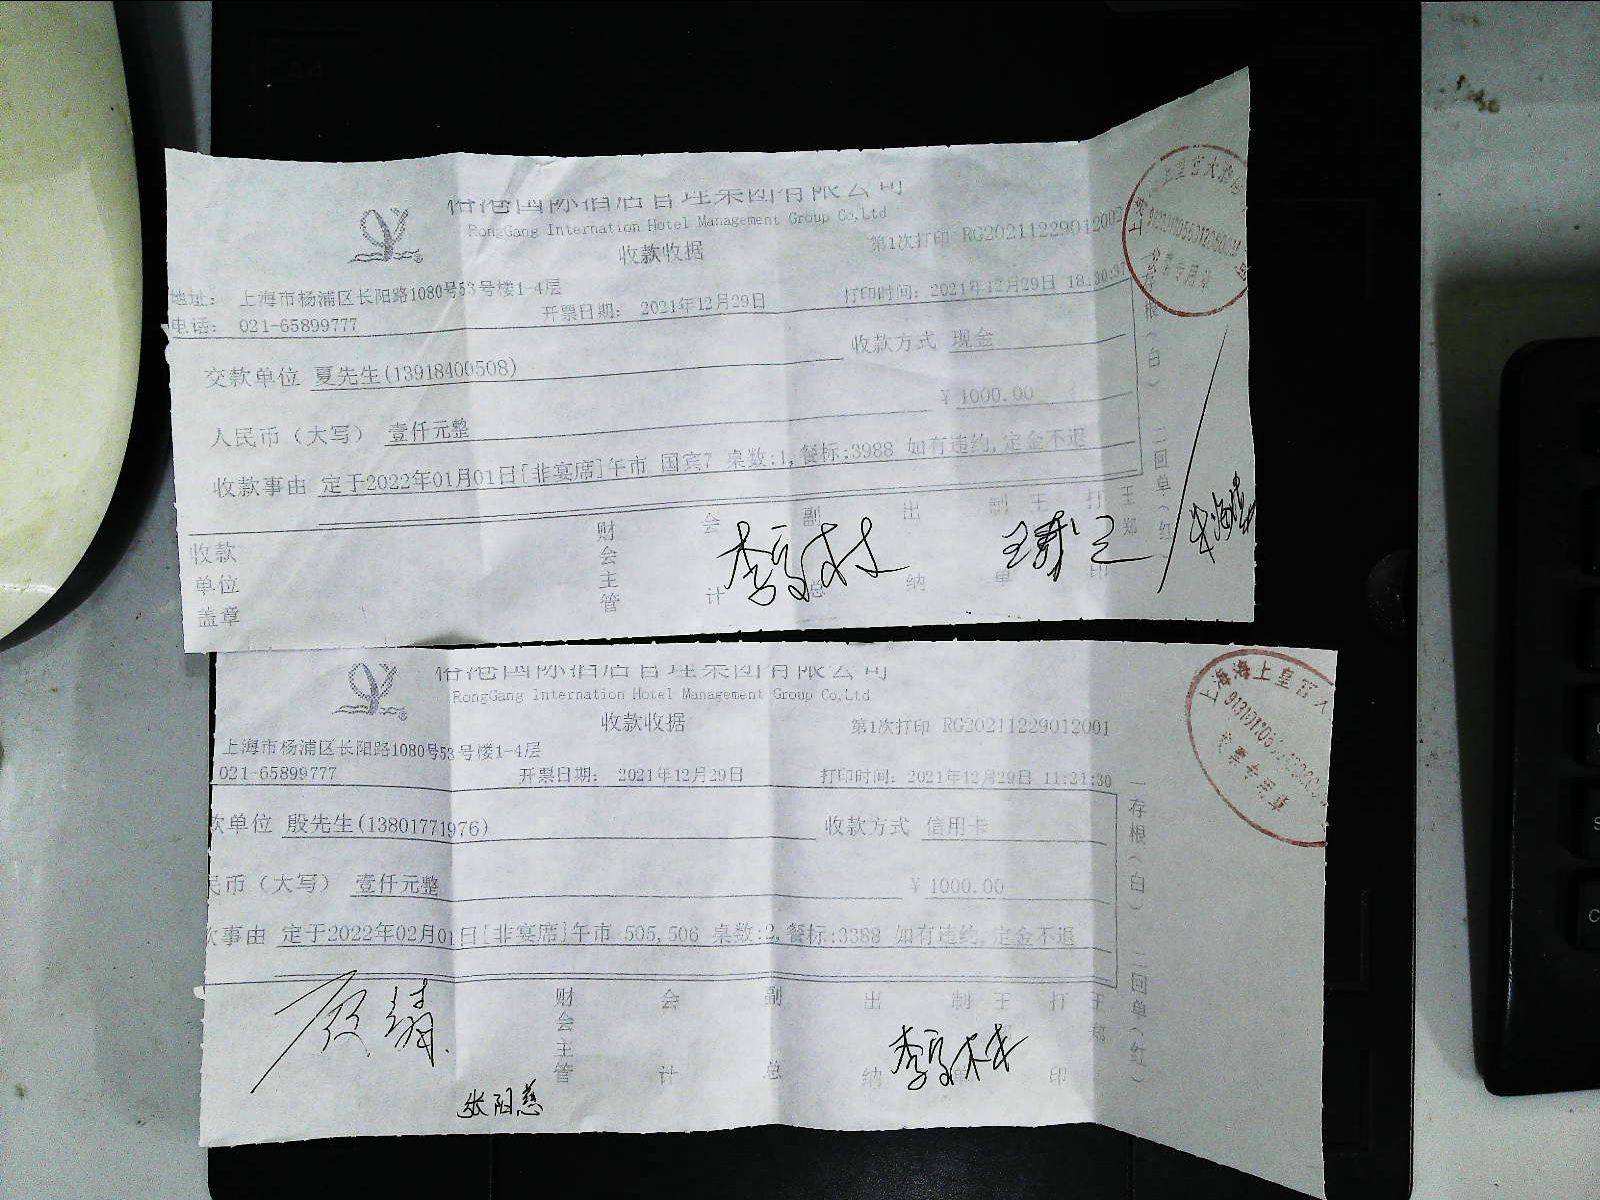 裕港国际酒店管理集团有限公司
RongGang Internation Hotel Management Group Co,Ltd
收款收据
第1次打印 RG20211229012002
地址： 上海市杨浦区长阳路1080号53号楼1-4层
电话： 021-65899777
开票日期： 2021年12月29日
打印时间：2021年12月29日 18:30:37
交款单位 夏先生(13918400508)
收款方式 现金
人民币（大写） 壹仟元整
￥1000.00
收款事由 定于2022年01月01日[非宴席]午市 国宾7 桌数:1,餐标:3988 如有违约,定金不退
收款单位盖章
财会主管
会计
副总
出纳
制单
打印
王郑
存根（白） 二回单（红
发票专用章
裕港国际酒店管理集团有限公司
RongGang Internation Hotel Management Group Co,Ltd
收款收据
第1次打印 RG20211229012001
上海市杨浦区长阳路1080号53号楼1-4层
021-65899777
开票日期： 2021年12月29日
打印时间：2021年12月29日 11:21:30
款单位 殷先生(13801771976)
收款方式 信用卡
民币（大写） 壹仟元整
￥1000.00
款事由 定于2022年02月01日[非宴席]午市 505,506 桌数:2,餐标:3388 如有违约,定金不退
财会主管
会计
副总
出纳
制单
打印
王郑
一存根（白） 二回单（红）
张阳慈
上海海上皇宫大
发票专用章